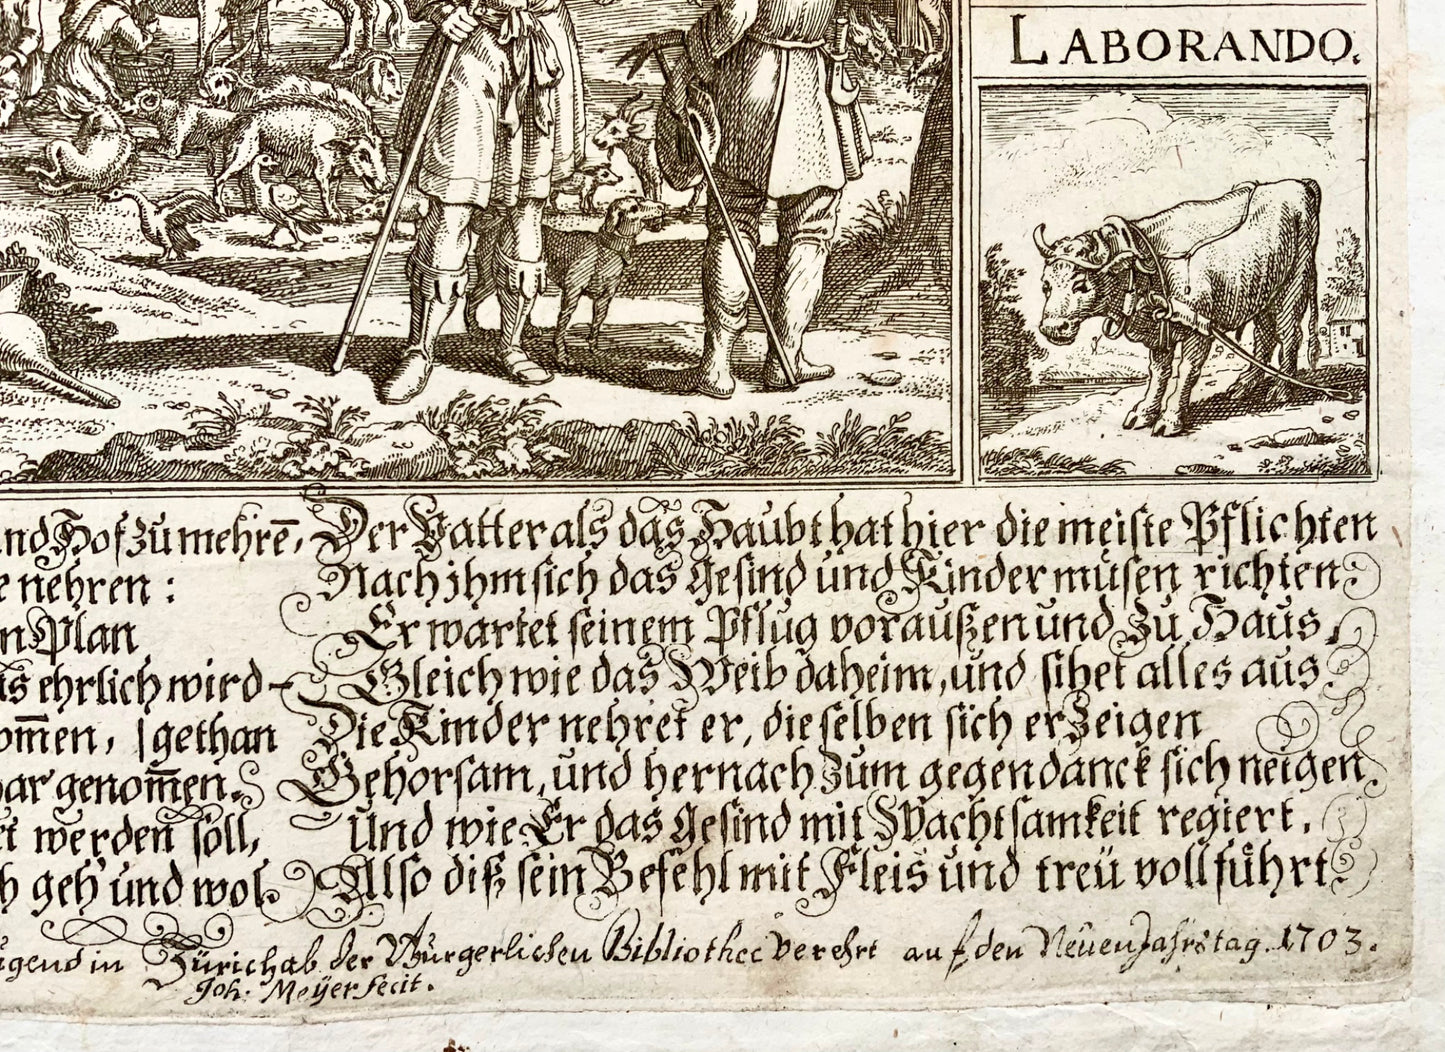 LABORANDO.
nd Hof zu mehrē,
e nehren:
n Plan
s ehrlich wird
om̅en, / gethan
ar genom̅en.
t werden soll,
h geh' und wol.
Der Vatter als das Haubt hat hier die meiste Pflichten
Nach jhm sich das Gesind und Kinder müsen richten
Er wartet seinem Pflug voraußen und zu Haus,
Gleich wie das Weib daheim, und sihet alles aus.
Die Kinder nehret er, dieselben sich erzeigen
Gehorsam, und hernach zum gegendanck sich neigen,
Und wie Er das Gesind mit Wachtsamkeit regiert,
Also diß sein Befehl mit Fleis und treü vollführt.
ugend in Zürich ab der Burgerlichen Bibliothec verehrt auf den Neüen Jahrstag. 1703.
Joh: Meÿer fecit.